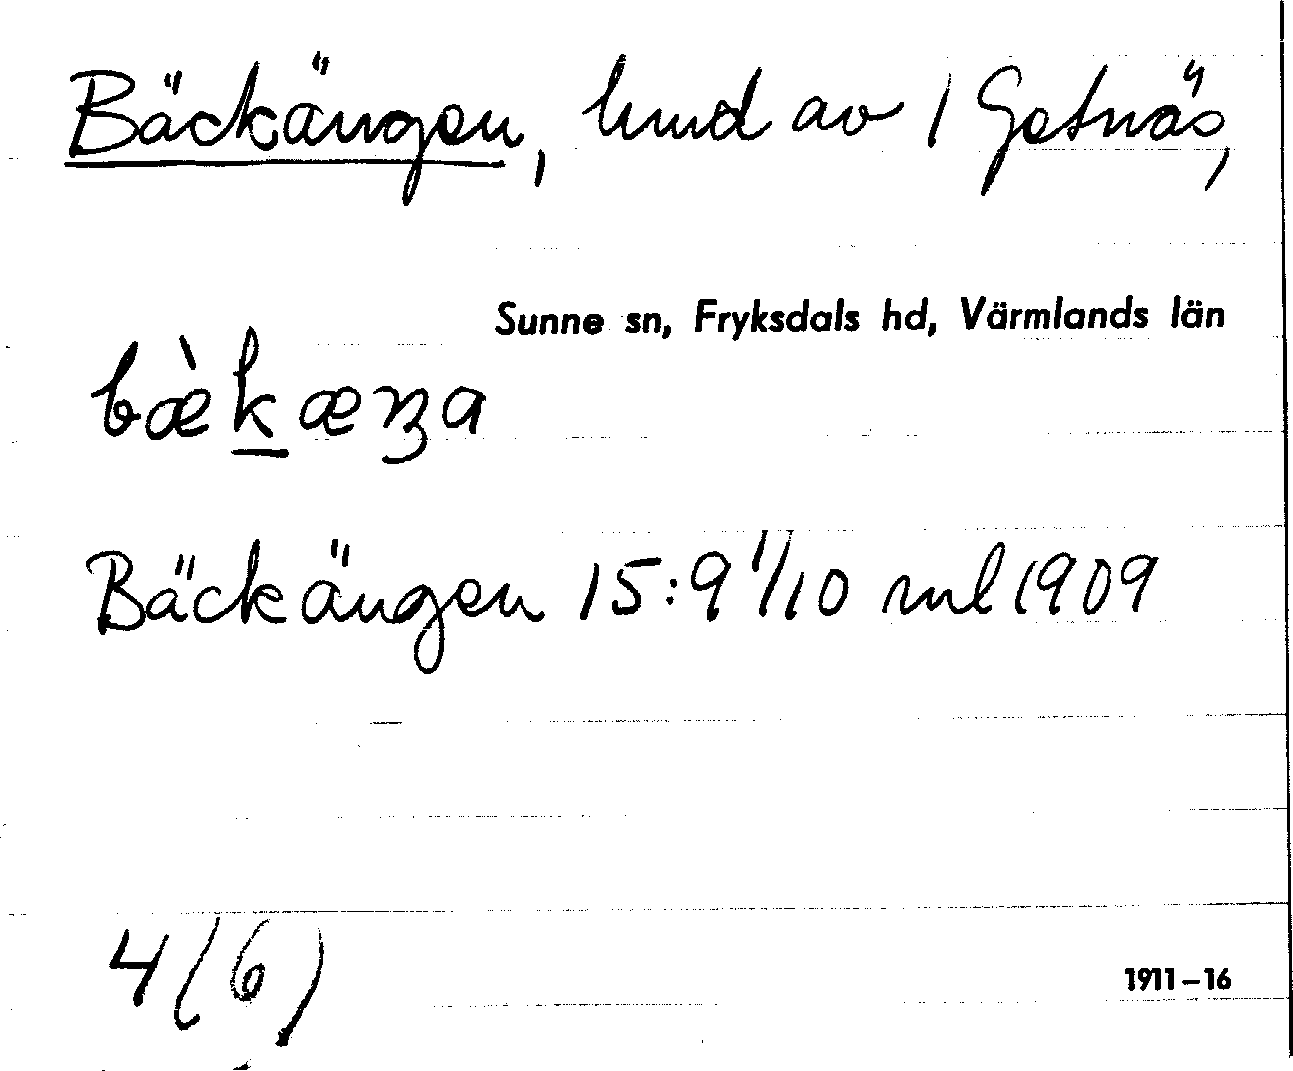 Bäckängen, hmd av 1 Getnäs,
Sunne sn, Fryksdals hd, Värmlands län
bæ̀k̲æŋa
Bäckängen 15:9 1/10 ml 1909
4 (6)
1911–16